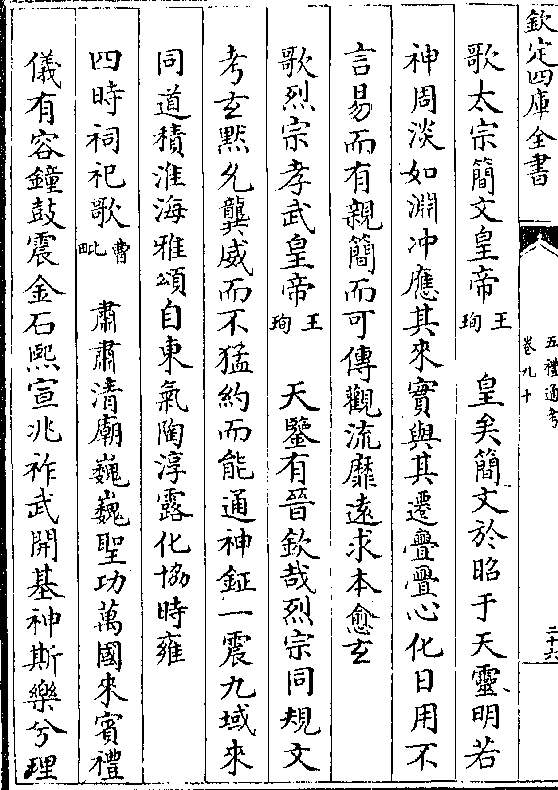 欽定四庫全書
五禮通考
卷九十
二十六
歌太宗簡文皇帝王珣 皇矣簡文於昭于天靈明若
神周淡如淵冲應其來實與其遷亹亹心化日用不
言易而有親簡而可傳觀流靡遠求本愈玄
歌烈宗孝武皇帝王珣 天鑒有晉欽哉烈宗同規文
考玄默允龔威而不猛約而能通神鉦一震九域來
同道積淮海雅頌自東氣陶淳露化協時雍
四時祠祀歌曹毗 肅肅清廟巍巍聖功萬國來賓禮
儀有容鐘鼓震金石熙宣兆祚武開基神斯樂兮理